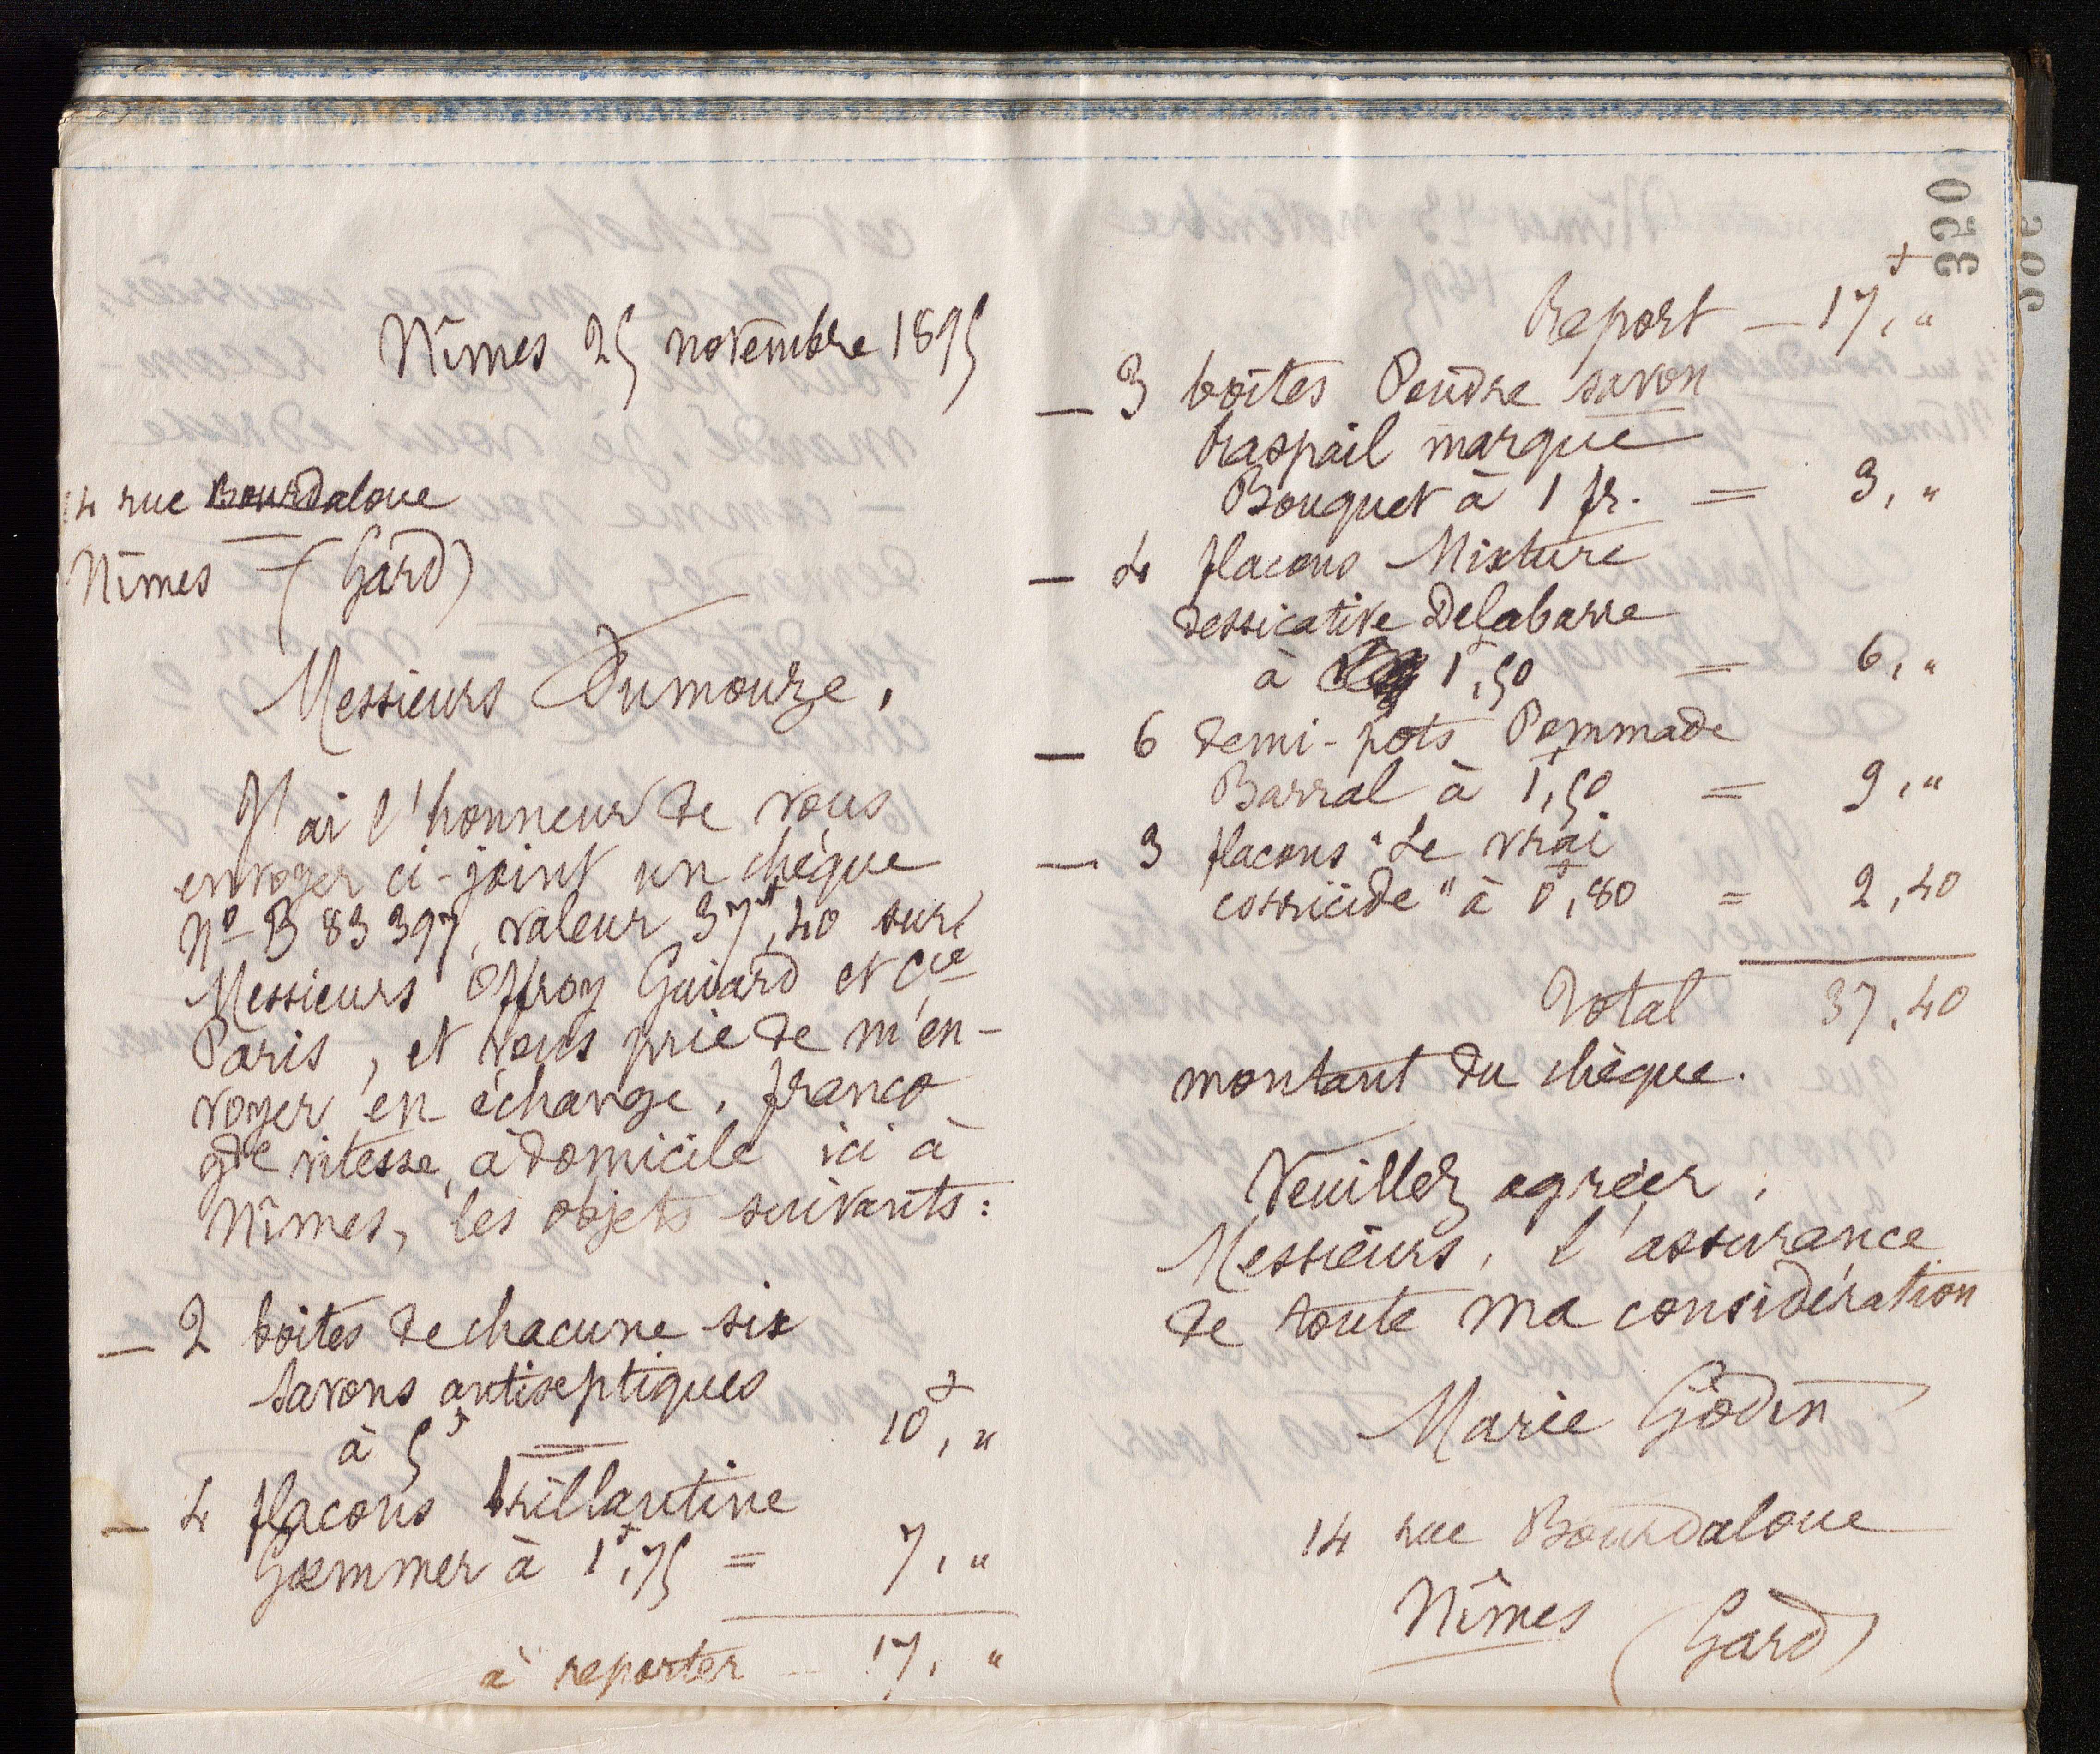 Nîmes 25 novembre 1895
14 rue Bourdaloue
Nîmes — (Gard)
Messieurs Dumouze,
J'ai l'honneur de vous
envoyer ci-joint un chèque
Nº B 83 397, valeur 37f,40 sur
Messieurs Offroy Guiard et Cie
Paris, et vous prie de m'en-
voyer en échange, franco
gde vitesse, à domicile ici à
Nîmes, les objets suivants:
— 2 boites de chacune six
savons antiseptiques
à 5f = 10f, "
— 4 flacons brillantine
Goemmer à 1f,75 = 7, "
à reporter — 17, "
350
Report — 17f, "
— 3 boîtes Poudre savon
Raspail marque
Bouquet à 1 fr. = 3, "
— 4 flacons Mixture
dessicative Delabarre
à 1f,50 = 6, "
— 6 demi-pots Pommade
Barral à 1f,50 = 9, "
— 3 flacons "Le vrai
corricide" à 0f,80 = 2,40
Total 37,40
montant du chèque.
Veuillez agréer,
Messieurs, l'assurance
de toute ma considération
Marie Godin
14 rue Bourdaloue
Nîmes (Gard)